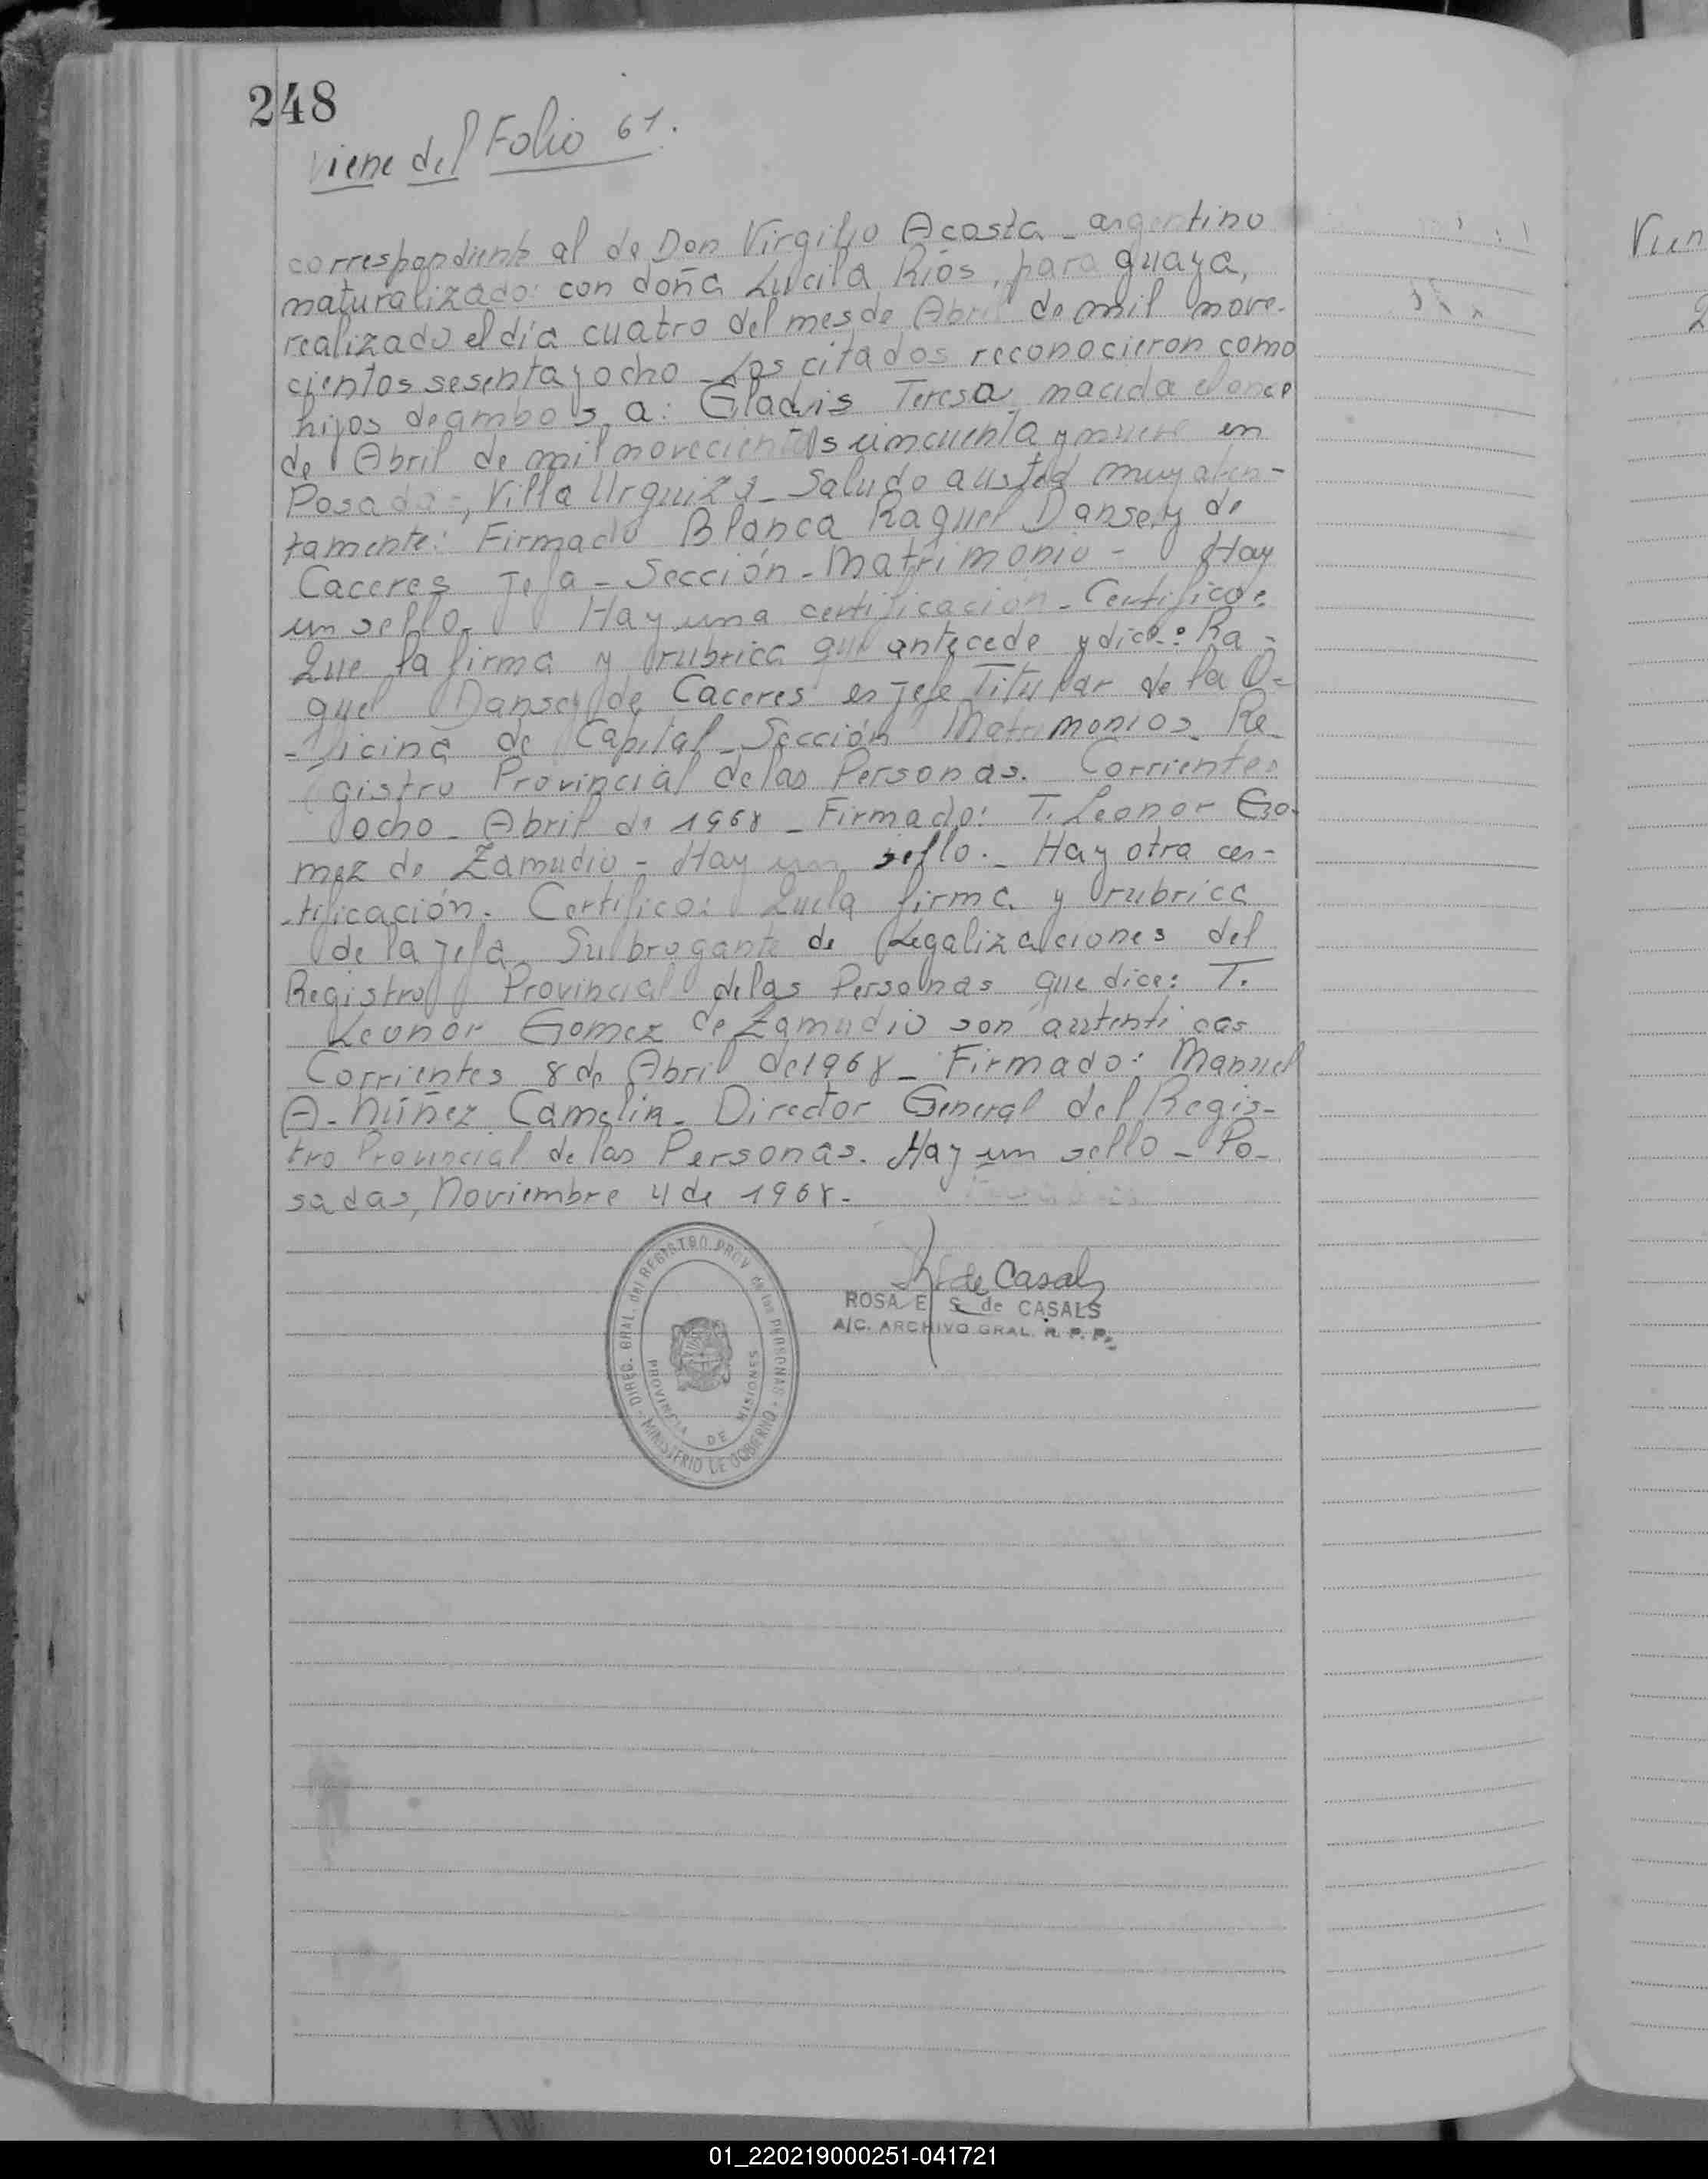 248
Viene del Folio 61.
correspondiente al de Don Virgilio Acosta - argentino
naturalizado: con doña Lucila Ríos, paraguaya,
realizado el día cuatro del mes de Abril de mil nove-
cientos sesenta y ocho - Los citados reconocieron como
hijos de ambos a: Gladis Teresa nacida el once
de Abril de mil novecientos cincuenta y nueve en
Posadas, Villa Urquiza - Saludo a usted muy aten-
tamente: Firmado Blanca Raquel Dansey de
Caceres Jefa - Sección - Matrimonio - Hay
un sello. Hay una certificación - Certifico:
Que la firma y rubrica que antecede y dice: Ra-
quel Dansey de Caceres es Jefe Titular de la O-
-ficina de Capital - Sección Matrimonios - Re-
gistro Provincial de las Personas. Corrientes
ocho - Abril de 1968 - Firmado: T. Leonor Go-
mez de Zamudio - Hay un sello. - Hay otra cer-
-tificación. Certifico: Que la firma y rubrica
de la Jefa Subrogante de Legalizaciones del
Registro Provincial de las Personas que dice: T.
Leonor Gomez de Zamudio son autenticas
Corrientes 8 de Abril de 1968 - Firmado: Manuel
A. Núñez Camelin - Director General del Regis-
tro Provincial de las Personas. Hay un sello - Po-
sadas, Noviembre 4 de 1968 -
DIREC. GRAL. del REGISTRO PROV. de las PERSONAS - MINISTERIO DE GOBIERNO -
PROVINCIA DE MISIONES
de Casals
ROSA E. S. de CASALS
A/C. ARCHIVO GRAL. R. P. P.
Vien
01_220219000251-041721